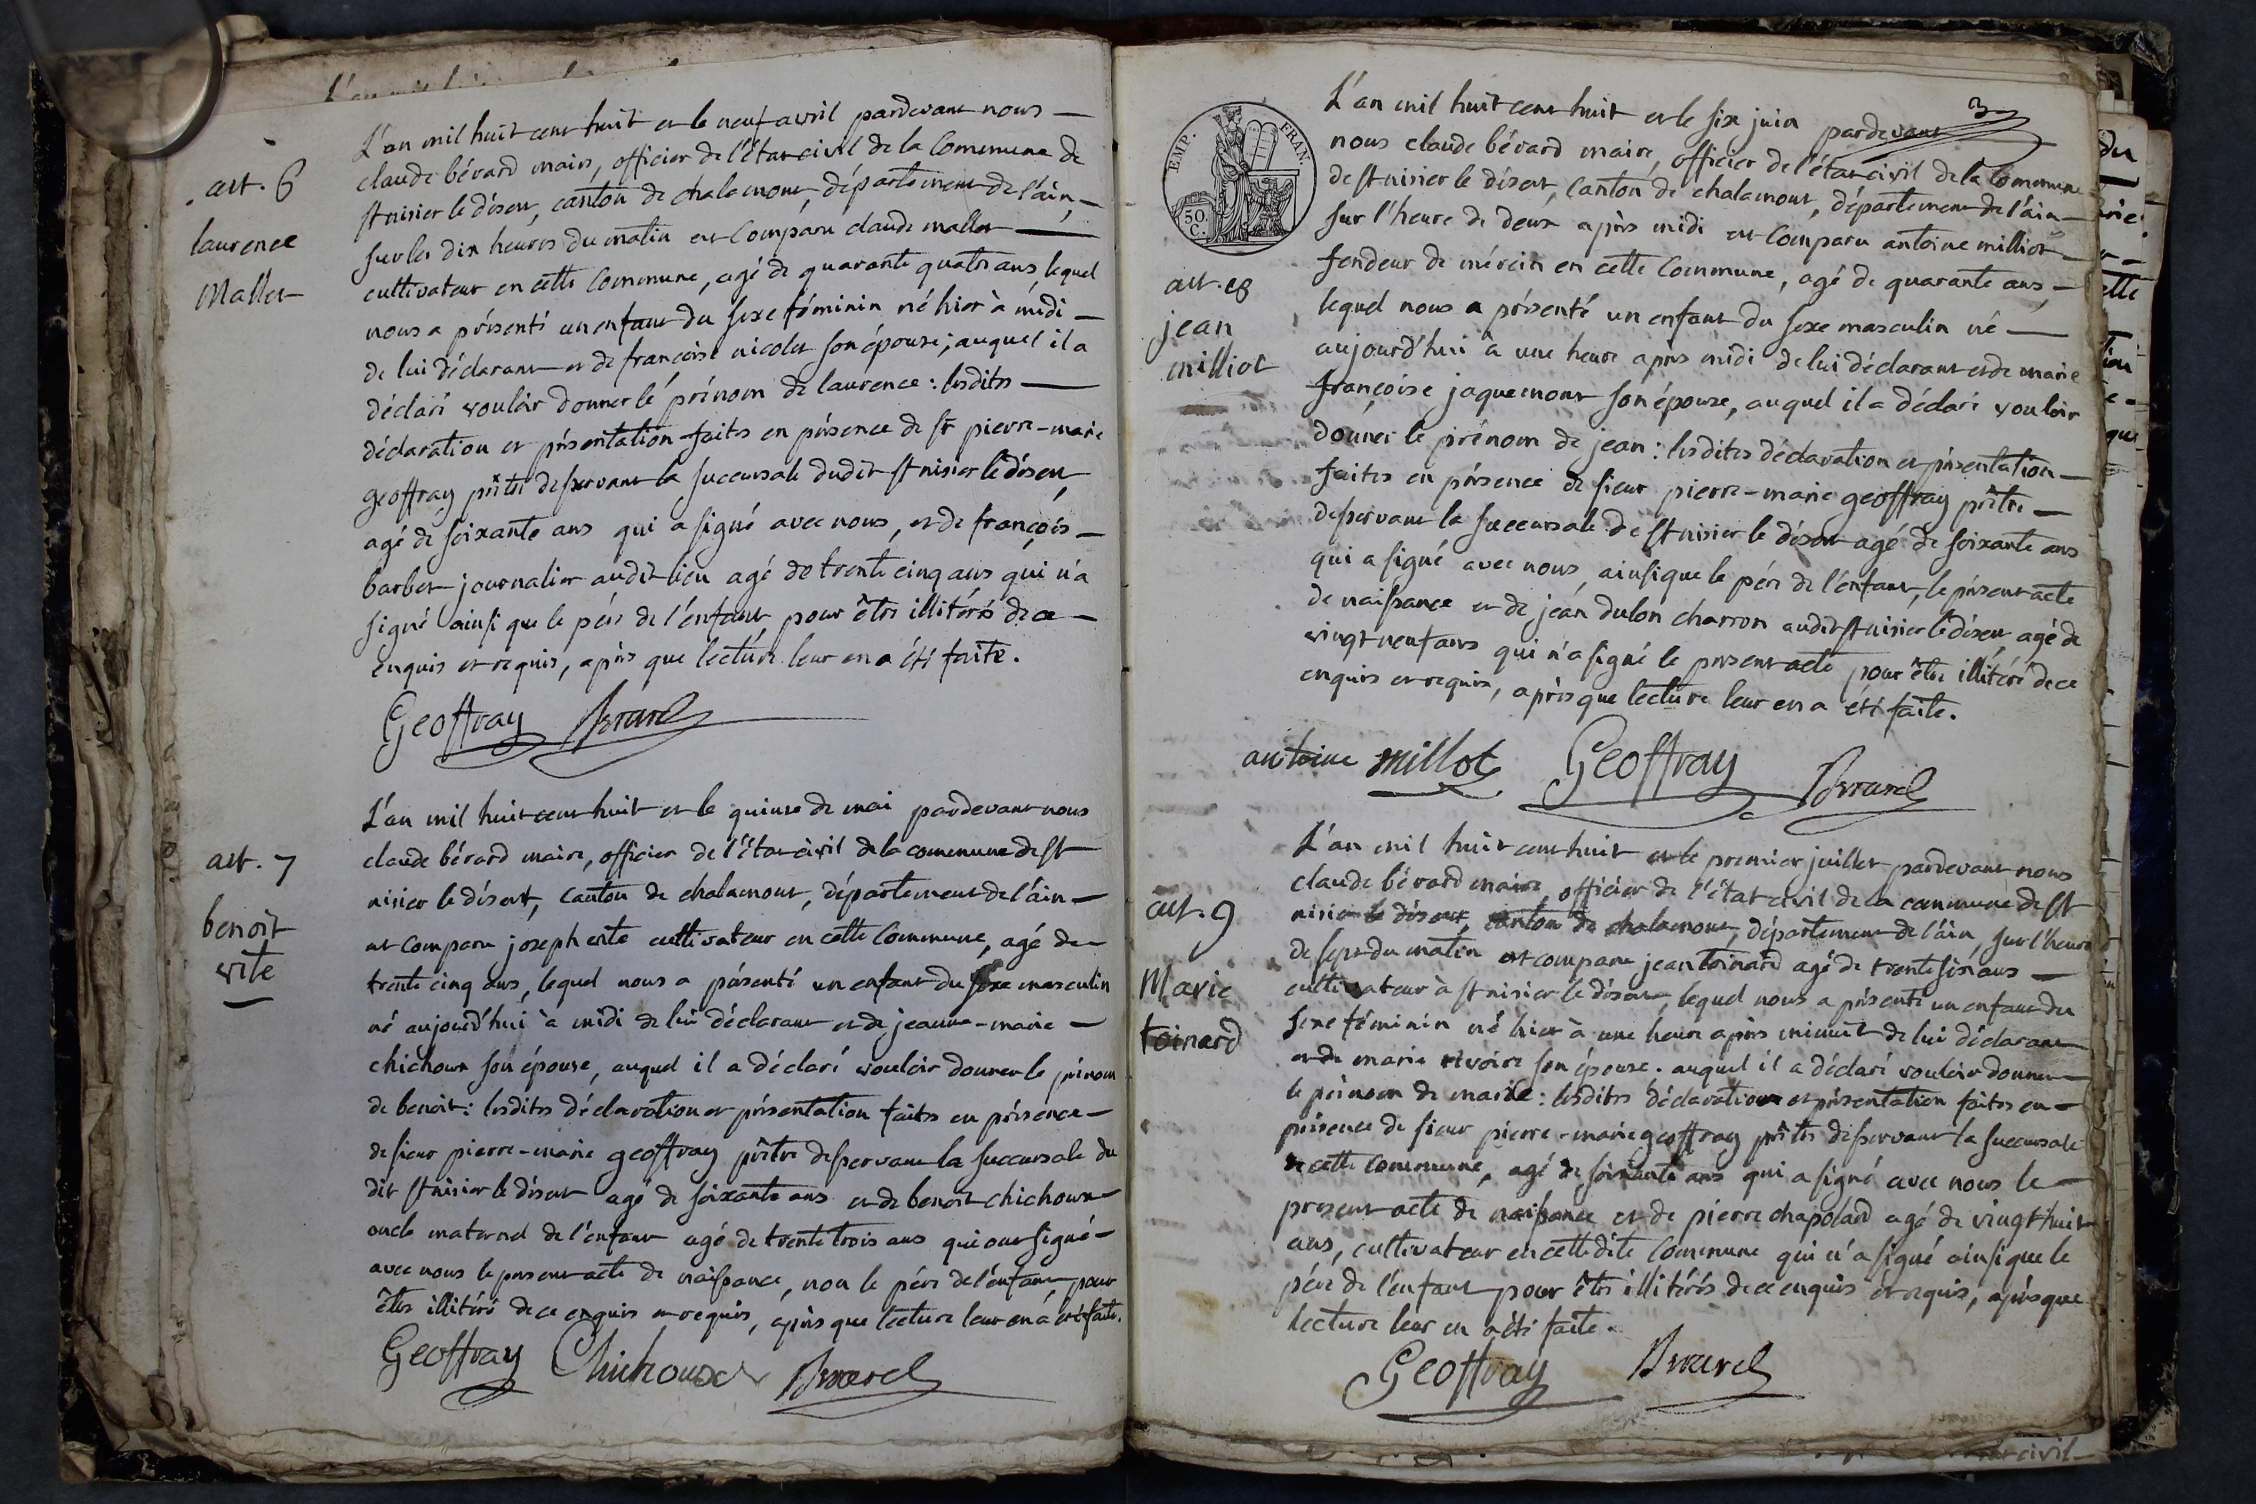 art. 6
laurence
Mallet
L'an mil huit cent huit et le neuf avril pardevant nous
claude bérard maire, officier de l'état civil de la Commune de
st nisier le désert, canton de chalamont, département de l'ain,
sur les dix heures du matin est Comparu claude mallet
cultivateur en cette Commune, agé de quarante quatre ans, lequel
nous a présenté un enfant du sexe féminin né hier à midi
de lui déclarant et de françoise nicolet son épouse; auquel il a
déclaré vouloir donner le prénom de laurence: lesdites
déclaration et présentation faites en présence de sr pierre-marie
geoffray prêtre desservant la succursale dudit st nisier le désert,
agé de soixante ans qui a signé avec nous, et de françois
barbet journalier audit lieu agé de trente cinq ans qui n'a
signé ainsi que le père de l'enfant pour être illitérés de ce
enquis et requis, après que lecture leur en a été faite.
Geoffray Berard
art. 7
benoit
vite
L'an mil huit cent huit et le quinze de mai pardevant nous
claude bérard maire, officier de l'état civil de la commune de st
nisier le désert, canton de chalamont, département de l'ain
est comparu joseph vite cultivateur en cette Commune, agé de
trente cinq ans, lequel nous a présenté un enfant du sexe masculin
né aujourd'hui à midi de lui déclarant et de jeanne-marie
chichoux son épouse, auquel il a déclaré vouloir donner le prénom
de benoit: lesdites déclaration et présentation faites en présence
de sieur pierre-marie geoffray prêtre desservant la succursale du
dit st nisier le désert agé de soixante ans et de benoit chichoux
oncle maternel de l'enfant agé de trente trois ans qui ont signé
avec nous le present acte de naissance, non le père de l'enfant, pour
être illitéré de ce enquis et requis, après que lecture leur en a été faite.
Geoffray Chichoux Berard
3
EMP. FRAN.
50.
C.
art. 8
jean
milliot
L'an mil huit cent huit et le six juin pardevant
nous claude bérard maire, officier de l'état civil de la Commune
de st nisier le désert, Canton de chalamont, département de l'ain
sur l'heure de deux après midi est Comparu antoine milliot
fendeur de mérein en cette Commune, agé de quarante ans,
lequel nous a présenté un enfant du sexe masculin né
aujourd'hui à une heure après midi de lui déclarant et de marie
françoise jaquemont son épouse, auquel il a déclaré vouloir
donner le prénom de jean: lesdites déclaration et présentation
faites en présence de sieur pierre-marie geoffray prêtre
desservant la succursale de st nisier le désert agé de soixante ans
qui a signé avec nous, ainsi que le père de l'enfant, le présent acte
de naissance et de jean dulon charron audit st nisier le désert, agé de
vingt neuf ans qui n'a signé le present acte pour être illitéré de ce
enquis et requis, après que lecture leur en a été faite.
antoine millot Geoffray Berard
art. 9
Marie
toinard
L'an mil huit cent huit et le premier juillet pardevant nous
claude bérard maire, officier de l'état civil de la commune de st
nisier le désert, canton de chalamont, département de l'ain, sur l'heure
de sept du matin est comparu jean toinard agé de trente six ans
cultivateur à st nisier le désert, lequel nous a présenté un enfant du
sexe féminin né hier à une heure après minuit de lui déclarant
et de marie rivoire son épouse. auquel il a déclaré vouloir donner
le prénom de marie: lesdites déclaration et présentation faites en
présence de sieur pierre-marie geoffray prêtre desservant la succursale
de cette commune, agé de soixante ans qui a signé avec nous le
present acte de naissance et de pierre chapolard agé de vingt huit
ans, cultivateur en cette dite commune qui n'a signé ainsi que le
père de l'enfant pour être illitérés de ce enquis et requis, après que
lecture leur en a été faite.
Geoffray Berard